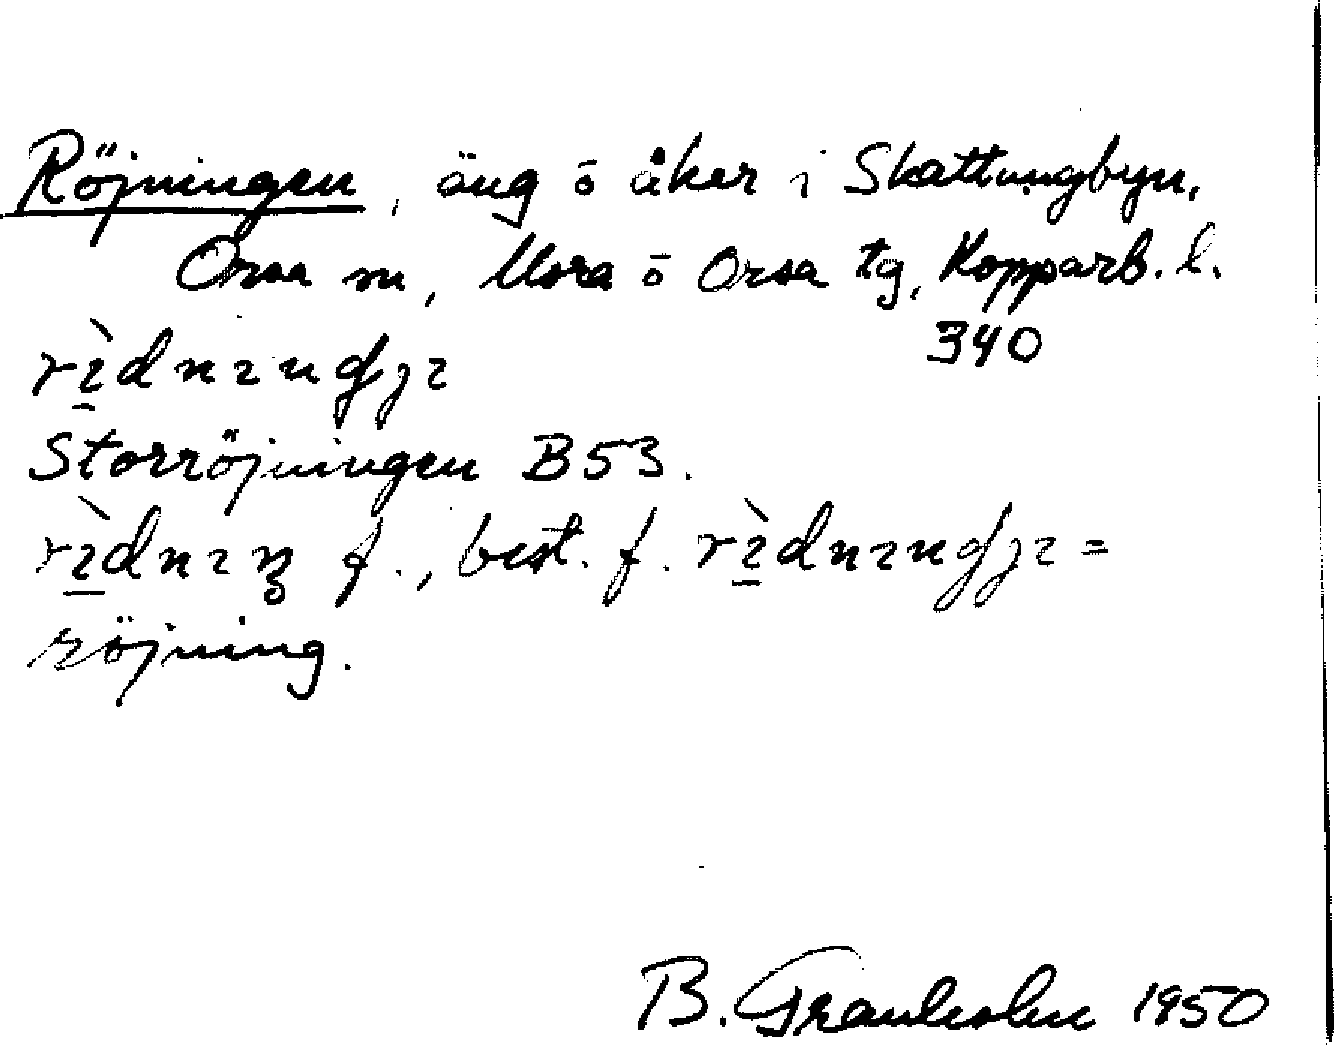 Röjningen, äng ō åker i Skattungbyn,
Orsa sn, Mora ō Orsa tg, Kopparb. l.
340
Storröjningen B53.
f., best. f. =
röjning.
B. Granholm 1950